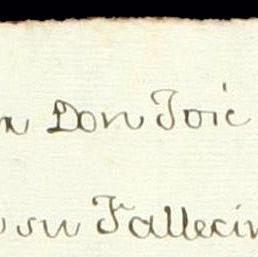 Don Joie
su Fallecim